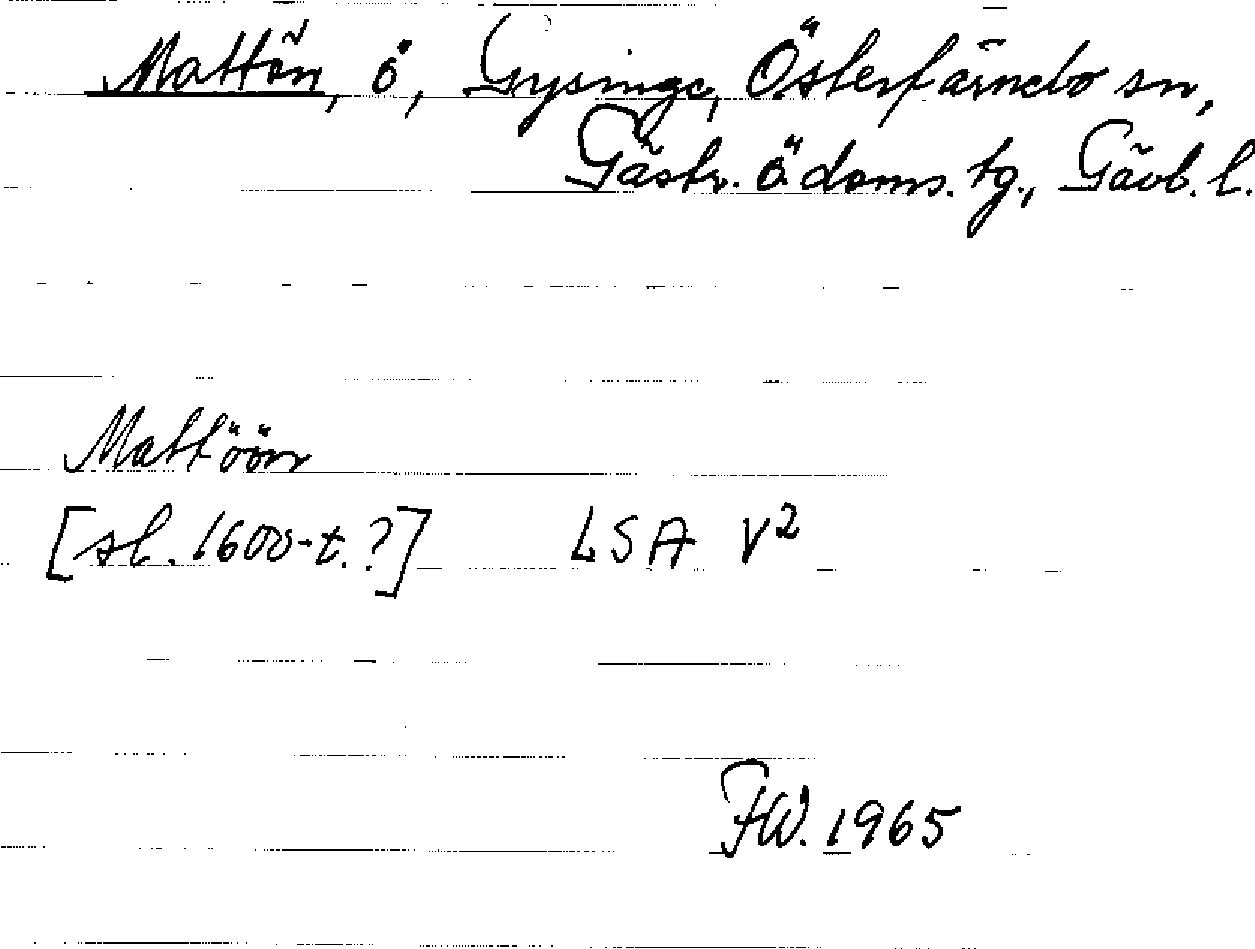 Mattön, ö, Gysinge, Österfärnebo sn,
Gästr. ö. doms. tg., Gävb. l.
Mattöön
[sl. 1600-t.?] LSA V2
FW. 1965